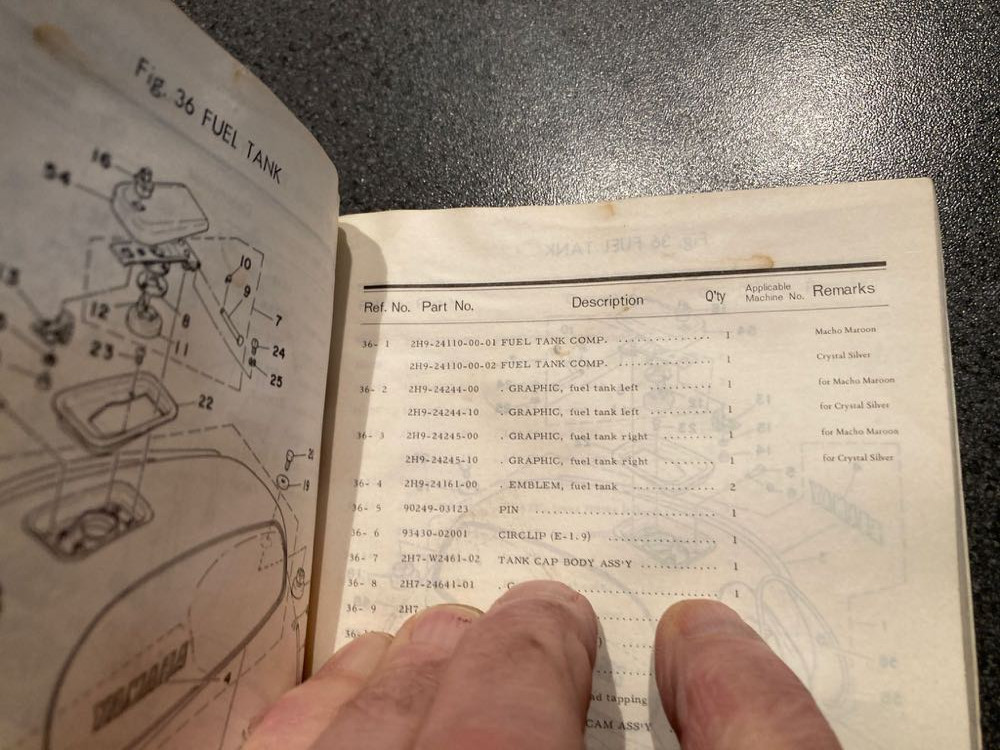 Fig. 36 FUEL TANK
16
54
10
9
13
12
8
7
11
24
23
25
22
21
19
YAMAHA
4
Ref. No. Part No. Description Q'ty Applicable Machine No. Remarks
36- 1 2H9-24110-00-01 FUEL TANK COMP. .............. 1 Macho Maroon
2H9-24110-00-02 FUEL TANK COMP. .............. 1 Crystal Silver
36- 2 2H9-24244-00 . GRAPHIC, fuel tank left ........ 1 for Macho Maroon
2H9-24244-10 . GRAPHIC, fuel tank left ........ 1 for Crystal Silver
36- 3 2H9-24245-00 . GRAPHIC, fuel tank right ........ 1 for Macho Maroon
2H9-24245-10 . GRAPHIC, fuel tank right ........ 1 for Crystal Silver
36- 4 2H9-24161-00 . EMBLEM, fuel tank .............. 2
36- 5 90249-03123 PIN .............................. 1
36- 6 93430-02001 CIRCLIP (E-1.9) .................. 1
36- 7 2H7-W2461-02 TANK CAP BODY ASS'Y ............ 1
36- 8 2H7-24641-01 . 1
36- 9 2H7
36-
tapping
CAM ASS'Y